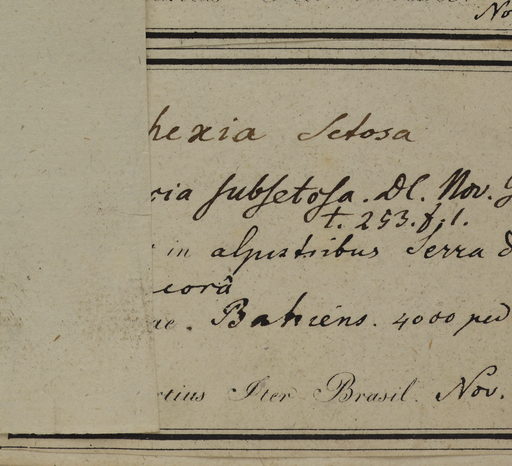 No
hexia setosa
cia subsetosa. Dl. Nov. G
t. 253. f. 1.
in alpestribus Serra d
corâ
ae. Bahiens. 4000 ped
rtius Iter Brasil. Nov.